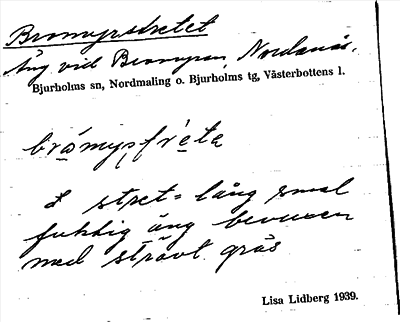 Bromyrstretet
Äng vid Bromyran, Nordanås,
Bjurholms sn, Nordmaling o. Bjurholms tg, Västerbottens l.
stret = lång smal
fuktig äng bevuxen
med strävt gräs
Lisa Lidberg 1939.